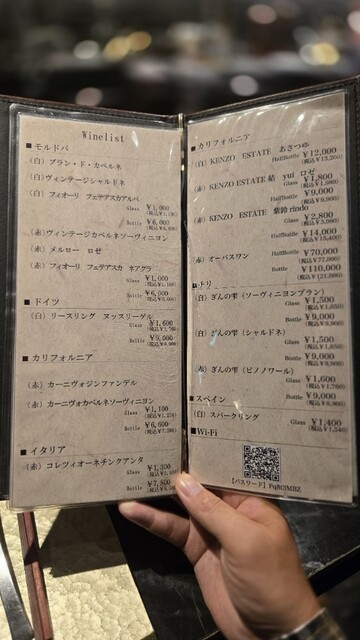 Winelist
■モルドバ
(白) ブラン・ド・カベルネ
(白) ヴィンテージシャルドネ
(白) フィオーリ フェテアスカアルバ
Glass ¥1,000
(税込¥1,100)
Bottle ¥6,000
(税込¥6,600)
(赤) ヴィンテージカベルネソーヴィニヨン
(赤) メルロー ロゼ
(赤) フィオーリ フェデアスカ ネアグラ
Glass ¥1,000
(税込¥1,100)
Bottle ¥6,000
(税込¥6,600)
■ドイツ
(白) リースリング ヌッスリーゲル
Glass ¥1,600
(税込¥1,760)
Bottle ¥9,000
(税込¥9,900)
■カリフォルニア
(赤) カーニヴォジンファンデル
(赤) カーニヴォカベルネソーヴィニヨン
Glass ¥1,100
(税込¥1,210)
Bottle ¥6,600
(税込¥7,260)
■イタリア
(赤) コレツィオーネチンクアンタ
Glass ¥1,300
Bottle ¥7,800
■カリフォルニア
(白) KENZO ESTATE あさつゆ
HalfBottle ¥12,000
(税込¥13,200)
(赤) KENZO ESTATE 結 yui ロゼ
Glass ¥1,800
(税込¥1,980)
HalfBottle ¥9,000
(税込¥9,900)
(赤) KENZO ESTATE 紫鈴 rindo
Glass ¥2,800
(税込¥3,080)
HalfBottle ¥14,000
(税込¥15,400)
(赤) オーパスワン
HalfBottle ¥70,000
(税込¥77,000)
Bottle ¥110,000
(税込¥121,000)
(白) ぎんの雫 (ソーヴィニヨンブラン)
Glass ¥1,500
(税込¥1,650)
Bottle ¥9,000
(税込¥9,900)
(白) ぎんの雫 (シャルドネ)
Glass ¥1,500
(税込¥1,650)
Bottle ¥9,000
(税込¥9,900)
(赤) ぎんの雫 (ピノノワール)
Glass ¥1,600
(税込¥1,760)
Bottle ¥9,000
(税込¥9,900)
■スペイン
(白) スパークリング
Glass ¥1,400
(税込¥1,540)
■Wi-Fi
【パスワード】FqRC3MBZ